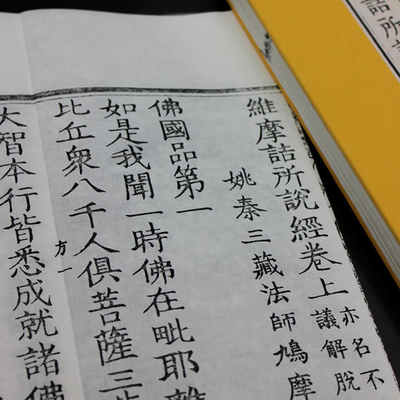 詰所
維摩詰所說經卷上
亦名不
議解脫
姚秦三藏法師鳩摩
佛國品第一
如是我聞一時佛在毗耶離
比丘眾八千人俱菩薩三
方一
大智本行皆悉成就諸佛